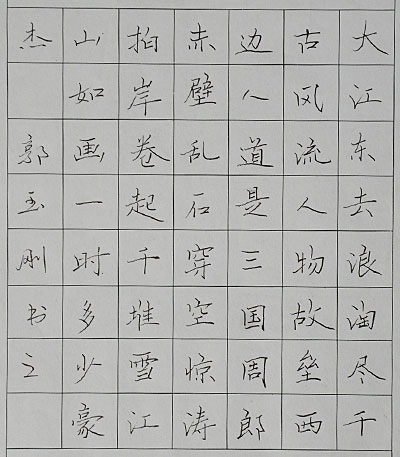 大江东去浪淘尽千
古风流人物故垒西
边人道是三国周郎
赤壁乱石穿空惊涛
拍岸卷起千堆雪江
山如画一时多少豪
杰 郭玉刚书之